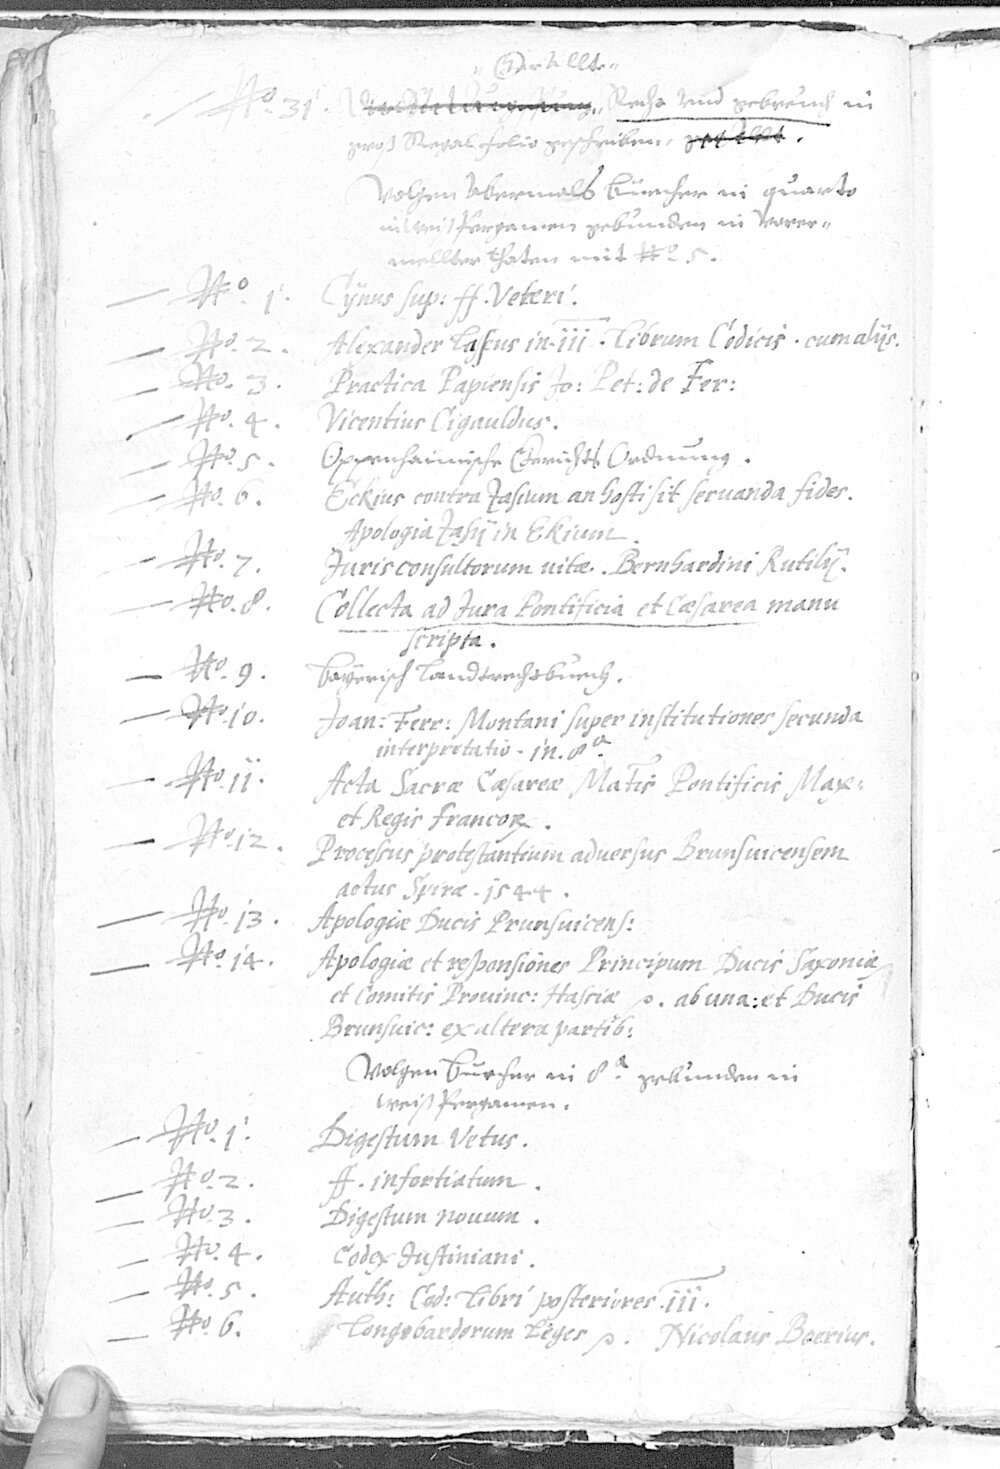 No. 31. Recht vnd gebreuch in
groß Regal folio geschriben,
Volgen abermals Buecher in quarto
in weiß Pergamen gebunden in
mit No. 5.
No. 1. Cynus sup: ff. Veteri.
No. 2. Alexander Iasus in iii. Librum Codicis. cum alijs.
No. 3. Practica Papiensis Jo: Pet: de Fer:
No. 4. Vicentius Cigauldus.
No. 5. Oppenhaimische Gerichts Ordnung.
No. 6. Eckius contra Jasium an hosti sit seruanda fides.
Apologia Jasij in Ekium.
No. 7. Jurisconsultorum uitæ. Bernhardini Rutilij.
No. 8. Collecta ad Jura Pontificia et Cæsarea manu
scripta.
No. 9. Bayerisch Landtrechtbuech.
No. 10. Joan: Ferr: Montani super institutiones secunda
interpretatio. in. 8ª.
No. 11. Acta Sacræ Cæsareæ Matis Pontificis Max:
et Regis Francor.
No. 12. Processus protestantium aduersus Brunsuicensem
actus Spiræ. 1544.
No. 13. Apologiæ Ducis Prunsuicens:
No. 14. Apologiæ et responsiones Principum Ducis Saxoniæ
et Comitis Prouinc: Hassiæ ab una: et Ducis
Brunsuic: ex altera partib:
Volgen Buecher in 8ª. gebunden in
weiß Pergamen.
No. 1. Digestum Vetus.
No. 2. ff. infortiatum.
No. 3. Digestum nouum.
No. 4. Codex Justiniani.
No. 5. Auth: Cod: Libri posteriores. iii.
No. 6. Longobardorum Leges Nicolaus Boerius.